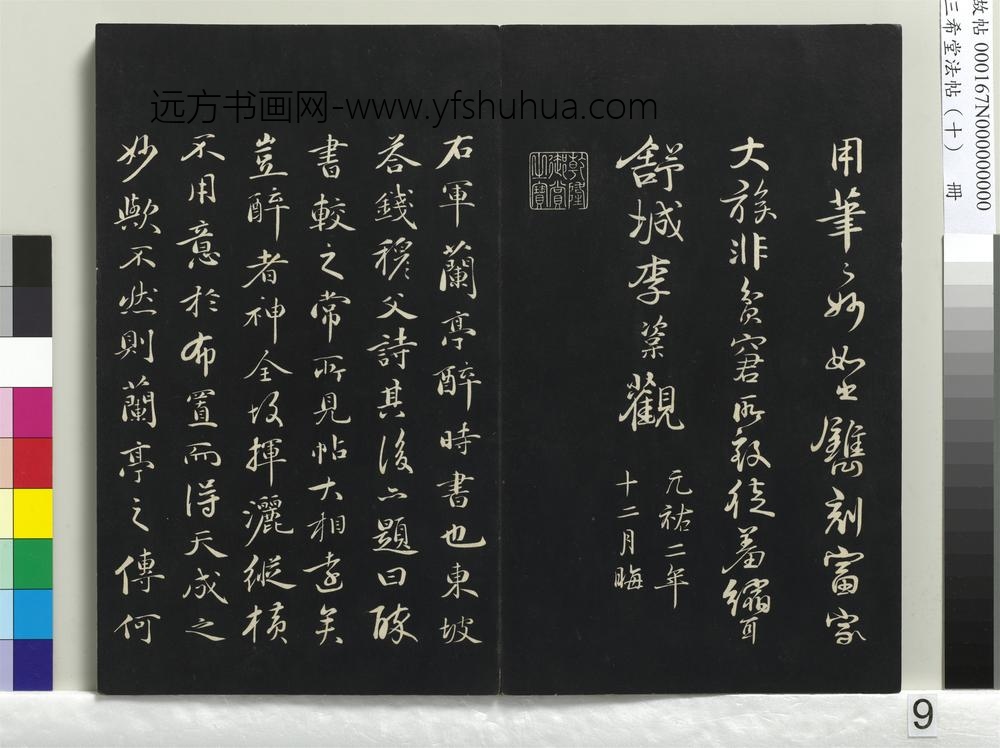 用筆之妙如雕鐫刻富家
大族非貧窘所致徒羞縮耳
舒城李楶觀
元祐二年
十二月晦
乾隆
御賞
之寶
右軍蘭亭醉時書也東坡
荅錢穆父詩其後亦題曰醉
書較之常所見帖大相遠矣
豈醉者神全故揮灑縱橫
不用意於布置而得天成之
妙歟不然則蘭亭之傳何
远方书画网-www.yfshuhua.com
故帖 000167N000000000
三希堂法帖（十） 冊
9